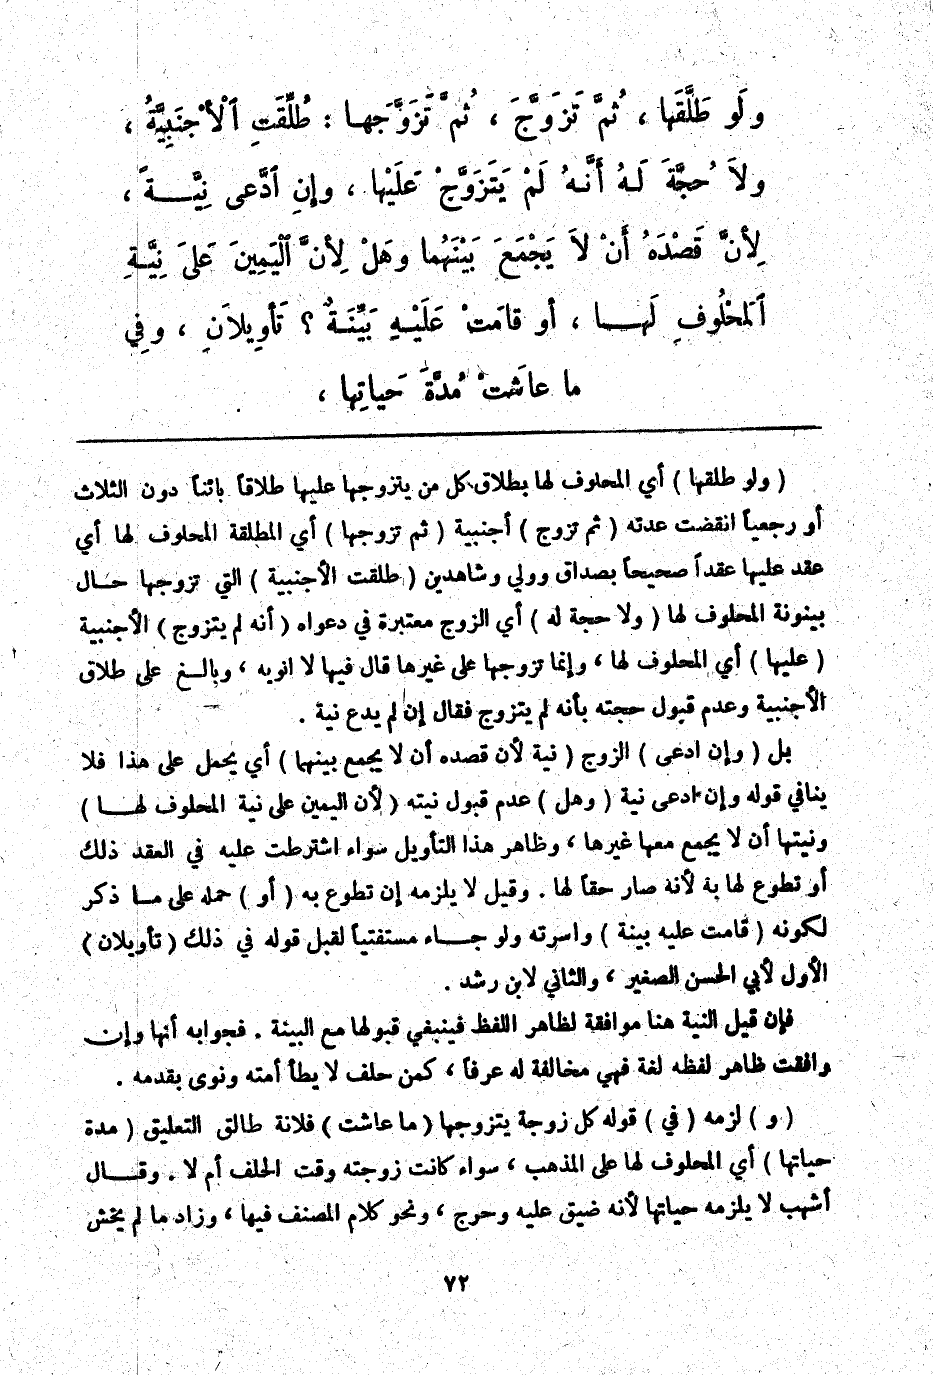 ولَو طَلَّقَها ، ثُمَّ تَزَوَّجَ ، ثُمَّ تَزَوَّجَها : طُلِّقَتِ ٱلْأَجْنَبِيَّةُ ،
ولاَ حُجَّةَ لَهُ أَنَّهُ لَمْ يَتَزَوَّجْ عَلَيْها ، وإنِ ٱدَّعى نِيَّةً ،
لِأَنَّ قَصْدَهُ أَنْ لاَ يَجْمَعَ بَيْنَهُما وهَلْ لِأَنَّ ٱلْيَمِينَ عَلَى نِيَّةِ
ٱلْمَحْلُوفِ لَها ، أو قامَتْ عَلَيْهِ بَيِّنَةٌ ؟ تَأوِيلاَنِ ، وفِي
ما عاشَتْ مُدَّةَ حَياتِها ،
( ولو طلقها ) أي المحلوف لها بطلاق كل من يتزوجها عليها طلاقاً بائناً دون الثلاث
أو رجعياً انقضت عدته ( ثم تزوج ) أجنبية ( ثم تزوجها ) أي المطلقة المحلوف لها أي
عقد عليها عقداً صحيحاً بصداق وولي وشاهدين ( طلقت الأجنبية ) التي تزوجها حال
بينونة المحلوف لها ( ولا حجة له ) أي الزوج معتبرة في دعواه ( أنه لم يتزوج ) الأجنبية
( عليها ) أي المحلوف لها ، وإنما تزوجها على غيرها قال فيها لا انويه ، وبالغ على طلاق
الأجنبية وعدم قبول حجته بأنه لم يتزوج فقال إن لم يدع نية .
بل ( وإن ادعى ) الزوج ( نية لأن قصده أن لا يجمع بينهما ) أي يحمل على هذا فلا
ينافي قوله وإن ادعى نية ( وهل ) عدم قبول نيته ( لأن اليمين على نية المحلوف لها )
ونيتها أن لا يجمع معها غيرها ، وظاهر هذا التأويل سواء اشترطت عليه في العقد ذلك
أو تطوع لها به لأنه صار حقاً لها . وقيل لا يلزمه إن تطوع به ( أو ) حمله على ما ذكر
لكونه ( قامت عليه بينة ) واسرته ولو جاء مستفتياً لقبل قوله في ذلك ( تأويلان )
الأول لأبي الحسن الصغير ، والثاني لابن رشد .
فإن قيل النية هنا موافقة لظاهر اللفظ فينبغي قبولها مع البينة . فجوابه أنها وإن
وافقت ظاهر لفظه لغة فهي مخالفة له عرفاً ، كمن حلف لا يطأ أمته ونوى بقدمه .
( و ) لزمه ( في ) قوله كل زوجة يتزوجها ( ما عاشت ) فلانة طالق التعليق ( مدة
حياتها ) أي المحلوف لها على المذهب ، سواء كانت زوجته وقت الحلف أم لا . وقال
أشهب لا يلزمه حياتها لأنه ضيق عليه وحرج ، ونحو كلام المصنف فيها ، وزاد ما لم يخش
٧٢